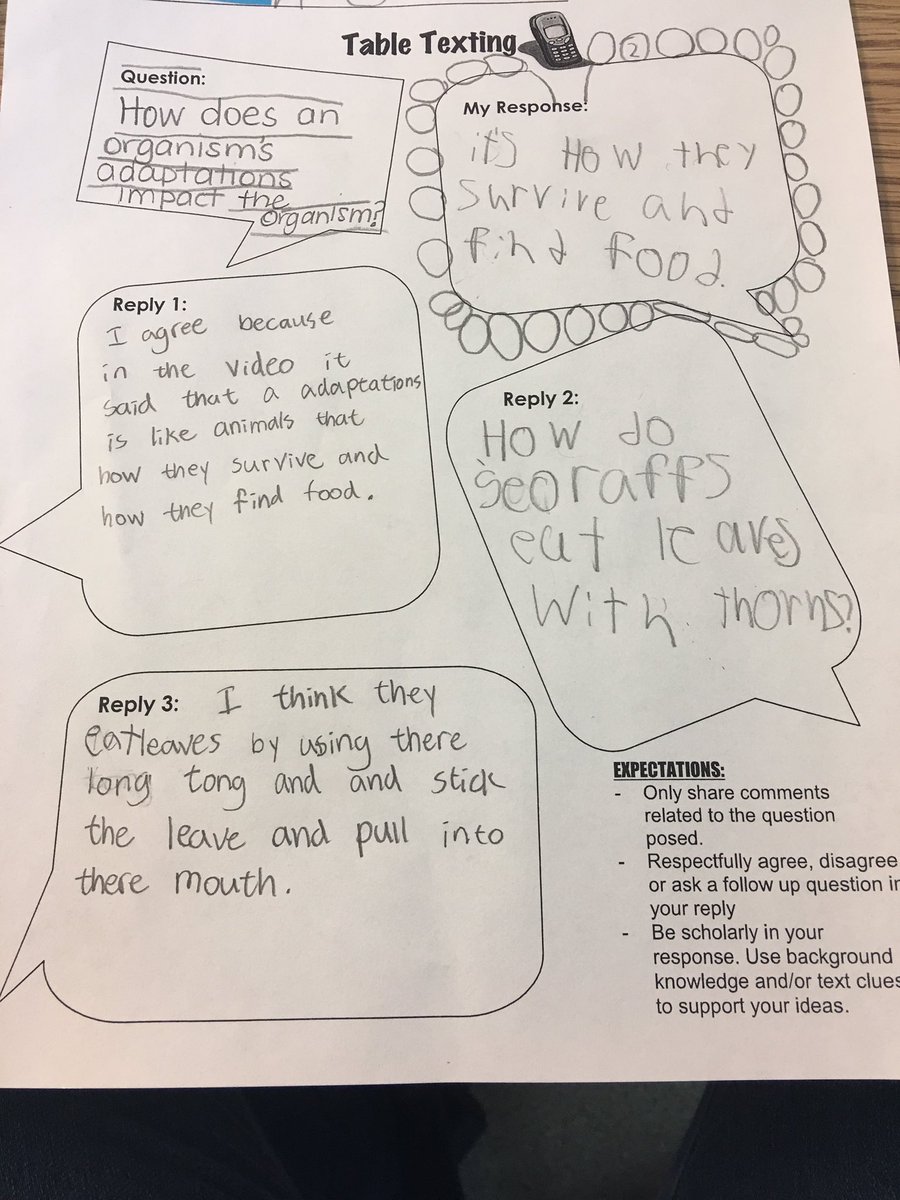 Table Texting
2
Question:
How does an
organism's
adaptations
impact the
organism?
My Response:
it's How they
survive and
find food.
Reply 1:
I agree because
in the video it
said that a adaptations
is like animals that
how they survive and
how they find food.
Reply 2:
How do
seoraffs
eat leaves
with thorns?
Reply 3: I think they
eatleaves by using there
long tong and and stick
the leave and pull into
there mouth.
EXPECTATIONS:
- Only share comments
related to the question
posed.
- Respectfully agree, disagree
or ask a follow up question in
your reply
- Be scholarly in your
response. Use background
knowledge and/or text clues
to support your ideas.